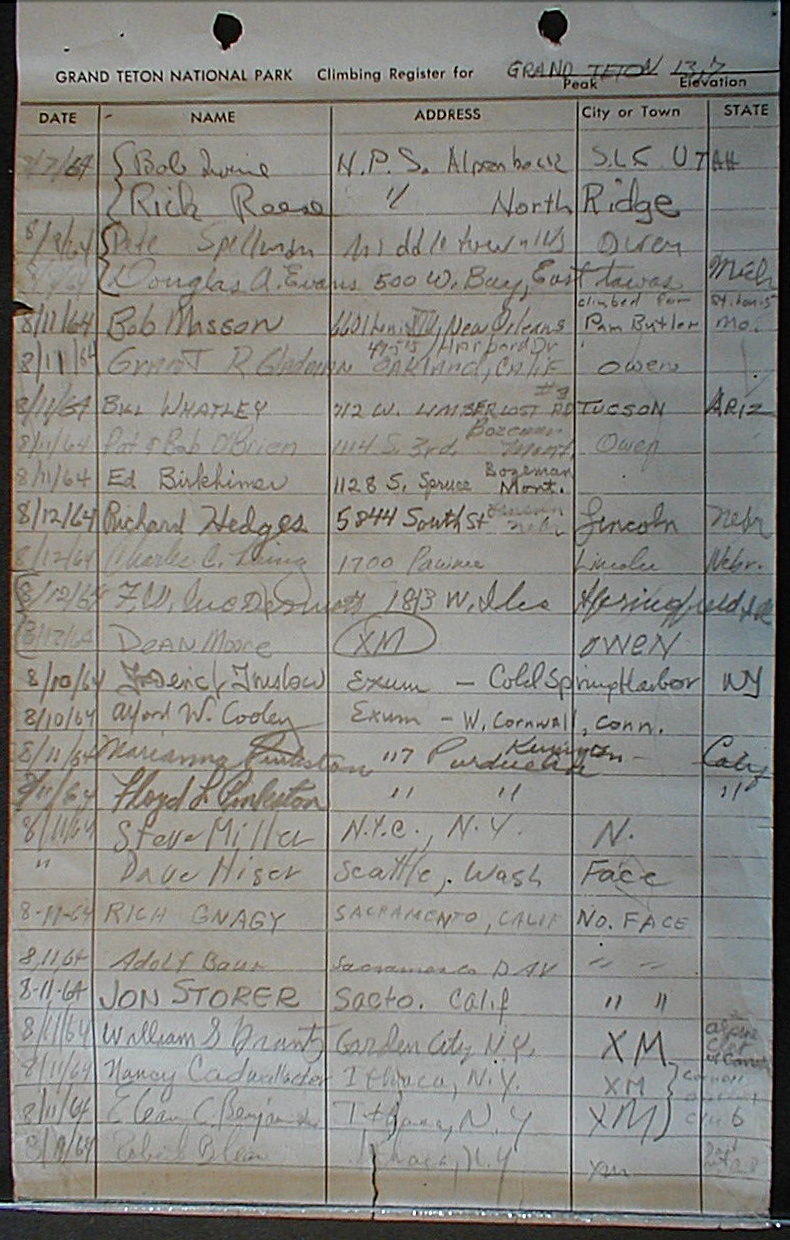 GRAND TETON NATIONAL PARK Climbing Register for GRAND TETON 13,7
Peak Elevation
DATE NAME ADDRESS City or Town STATE
8/7/64 Bob Irvine N.P.S. Alpenbock SLC UTAH
Rick Reese " North Ridge
8/8/64 Pete Spellman Middletown Owen
Douglas A. Evans 500 W. Bay, East tawas Mich
climbed for St. Louis
8/11/64 Bob Masson New Orleans Pam Butler Mo.
4955 Harbord Dr
8/11/64 Grant R OAKLAND, CALIF Owen
#9
8/11/64 BILL WHATLEY 712 W. LIMBERLOST RD TUCSON ARIZ
Bozeman
8/11/64 Pat & Bob O'Brien 1114 S. 3rd Mont. Owen
Bozeman
8/11/64 Ed Birkhimer 1128 S. Spruce Mont.
8/12/64 Richard Hedges 5844 South St Lincoln Nebr
8/12/64 Charles C. 1700 Pawnee Lincoln Nebr.
8/12/64 F.W. 1813 W. Iles Springfield, Ill
8/12/64 DEAN Moore XM OWEN
8/10/64 Frederick Truslow Exum - Cold Spring Harbor NY
8/10/64 Alford W. Cooley Exum - W. Cornwall, Conn.
8/11/64 Marianna Pinkston 117 Purdue Calif
8/11/64 Floyd L Pinkston " " "
8/11/64 Steve Miller N.Y.C., N.Y. N.
" Dave Hiser Seattle, Wash Face
8-11-64 RICH GNAGY SACRAMENTO, CALIF NO. FACE
8/11/64 Adolf Baur Sacramento " "
8-11-64 JON STORER Sacto. Calif " "
8/11/64 William S Garden City N.Y. XM
8/11/64 Nancy Cadwallader Ithaca, N.Y. XM
8/11/64 Ithaca, N.Y XM club
Robert Ithaca, N.Y XM